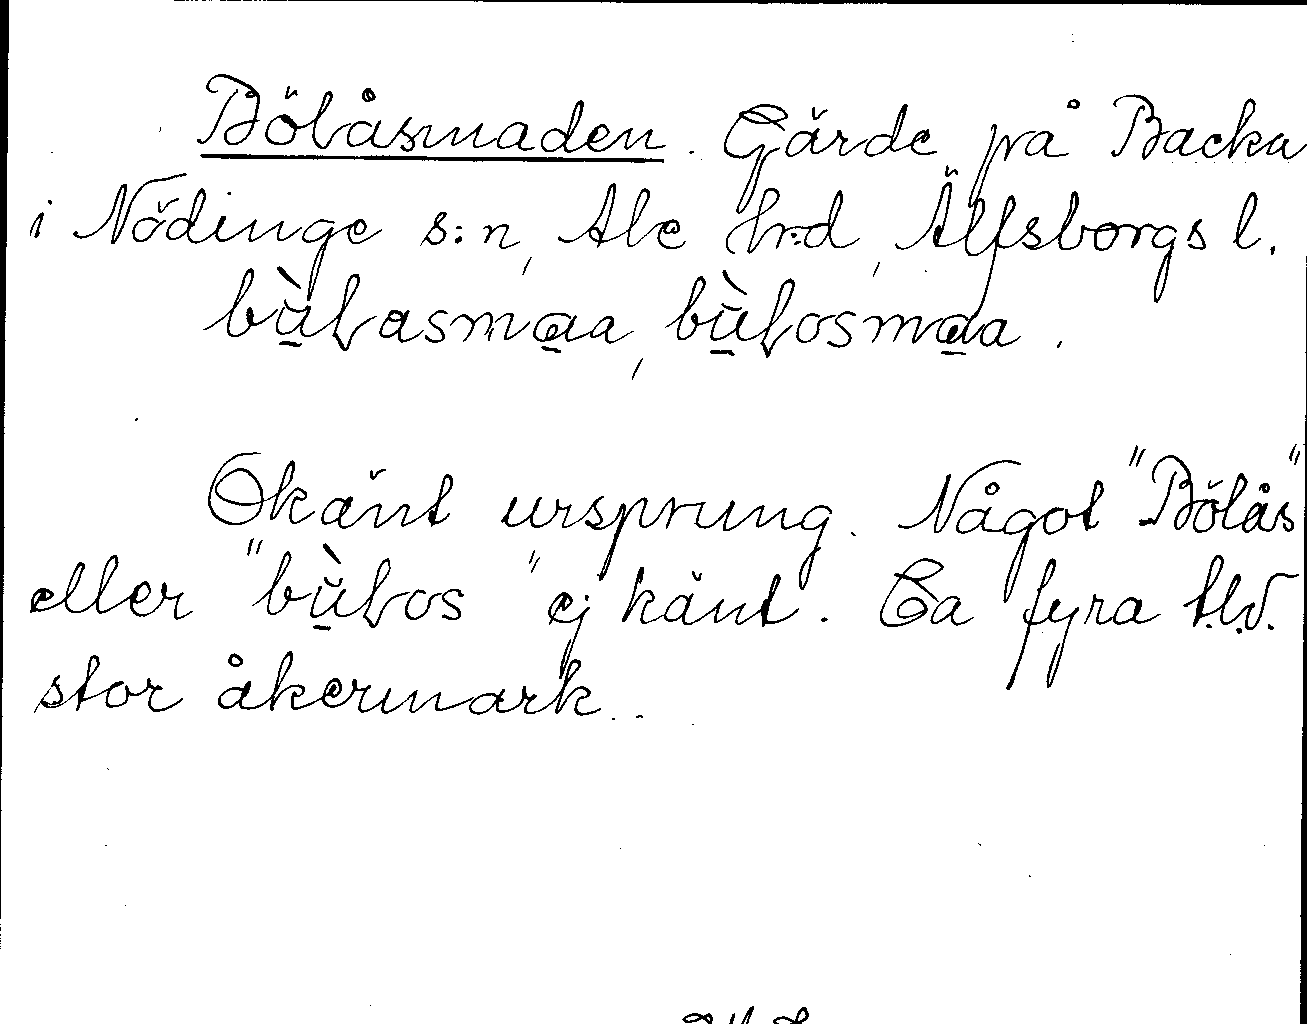 Bölåsmaden. Gärde på Backa
i Nödinge s:n, Ale hrd, Älfsborgs l.
bùłasmaa, bùłosmaa.
Okänt ursprung. Något "Bölås"
eller "bùłos" ej känt. Ca fyra t.l.d.
stor åkermark.